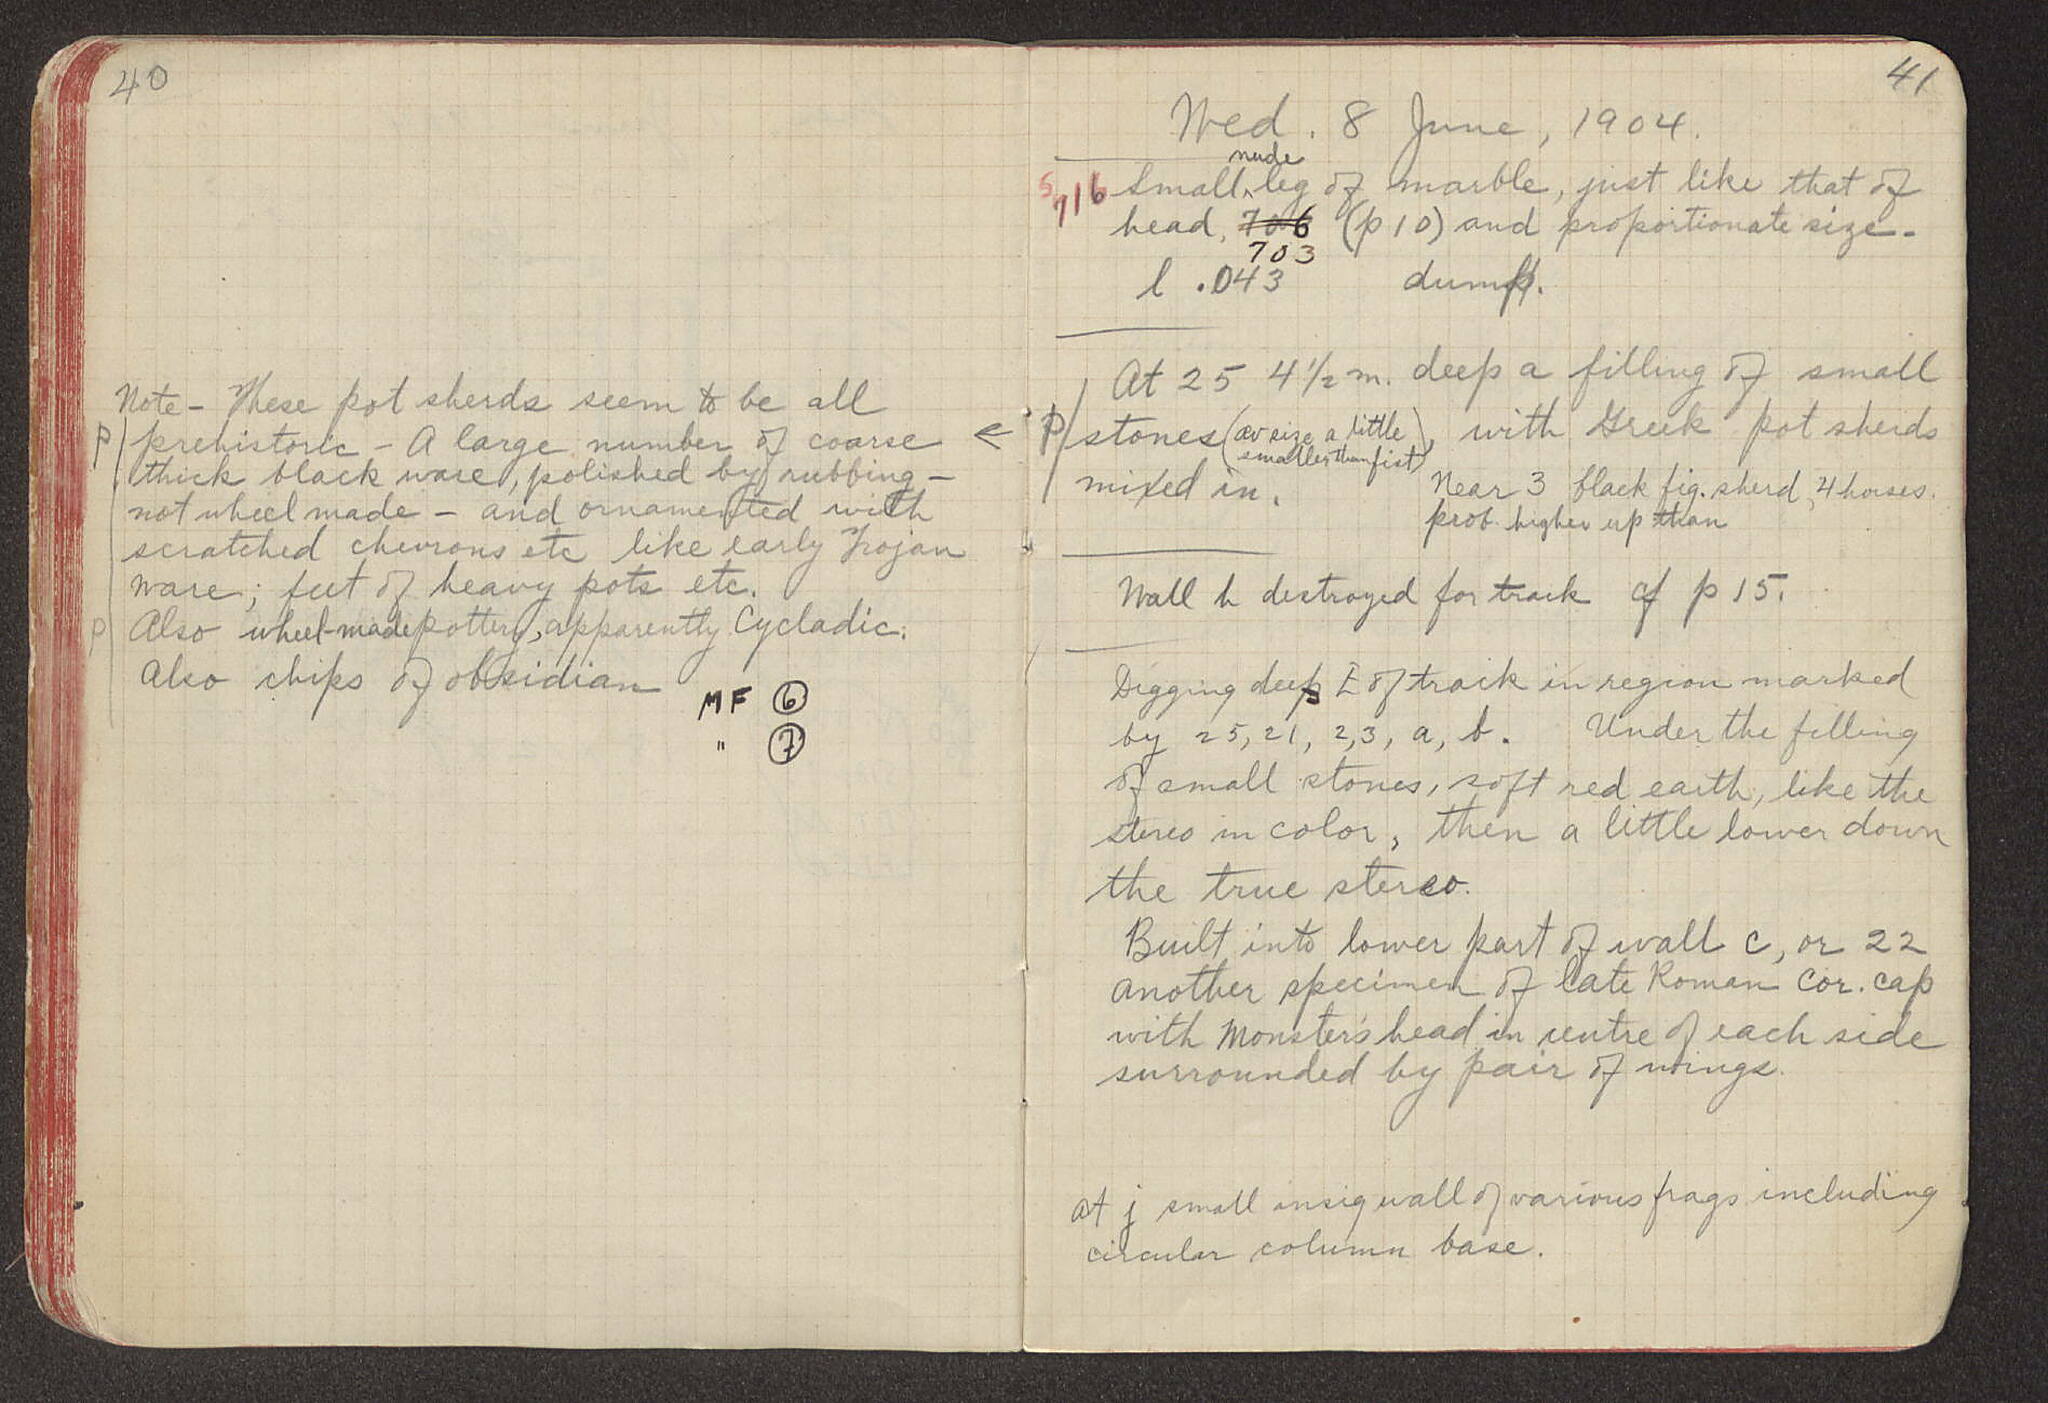 40
Note - These pot sherds seem to be all
P prehistoric - A large number of coarse
thick black ware, polished by rubbing -
not wheel made - and ornamented with
scratched chevrons etc like early Trojan
ware; feet of heavy pots etc.
P Also wheel-made pottery, apparently Cycladic.
Also chips of obsidian
MF ⑥
" ⑦
41
Wed. 8 June, 1904.
nude
S 716 Small ^ leg of marble, just like that of
head, 706 (p 10) and proportionate size -
703
l .043 dump.
At 25 4 1/2 m. deep a filling of small
← P stones (av size a little smaller than fist), with Greek pot sherds
mixed in.
Near 3 black fig. sherd, 4 horses.
prob. higher up than
Wall h destroyed for track cf p 15.
Digging deep E of track in region marked
by 25, 21, 2, 3, a, b. Under the filling
of small stones, soft red earth, like the
stereo in color, then a little lower down
the true stereo.
Built into lower part of wall c, or 22
another specimen of late Roman Cor. cap
with Monster's head in centre of each side
surrounded by pair of wings.
At j small insig wall of various frags including
circular column base.